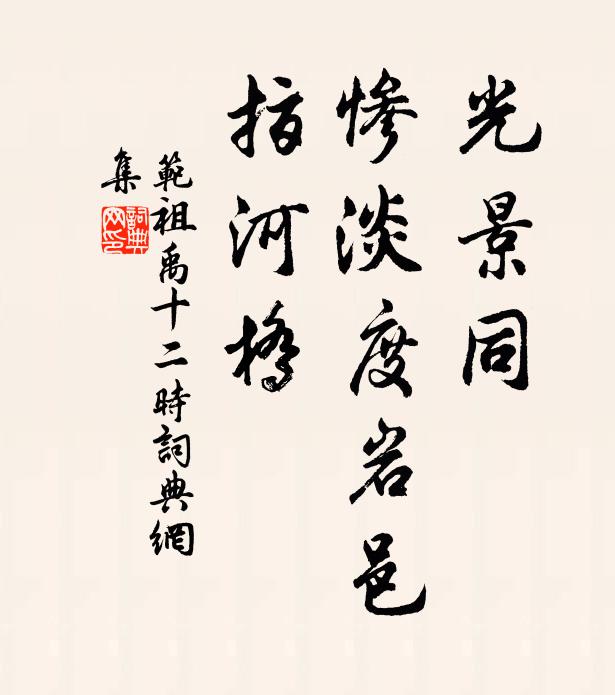 光景同
慘淡度岩邑
指河橋
範祖禹十二時詞典網
集
詞典網印